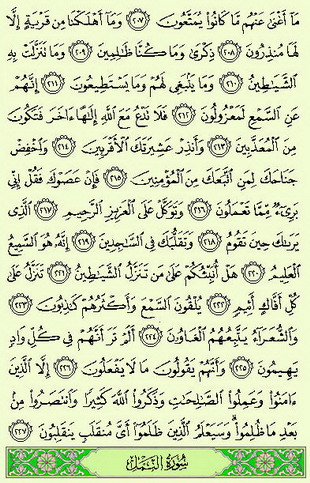 مَآ أَغْنَىٰ عَنْهُم مَّا كَانُوا۟ يُمَتَّعُونَ ٢٠٧ وَمَآ أَهْلَكْنَا مِن قَرْيَةٍ إِلَّا
لَهَا مُنذِرُونَ ٢٠٨ ذِكْرَىٰ وَمَا كُنَّا ظَٰلِمِينَ ٢٠٩ وَمَا نَزَّلَتْ بِهِ
ٱلشَّيَٰطِينُ ٢١٠ وَمَا يَنۢبَغِى لَهُمْ وَمَا يَسْتَطِيعُونَ ٢١١ إِنَّهُمْ
عَنِ ٱلسَّمْعِ لَمَعْزُولُونَ ٢١٢ فَلَا تَدْعُ مَعَ ٱللَّهِ إِلَٰهًا ءَاخَرَ فَتَكُونَ
مِنَ ٱلْمُعَذَّبِينَ ٢١٣ وَأَنذِرْ عَشِيرَتَكَ ٱلْأَقْرَبِينَ ٢١٤ وَٱخْفِضْ
جَنَاحَكَ لِمَنِ ٱتَّبَعَكَ مِنَ ٱلْمُؤْمِنِينَ ٢١٥ فَإِنْ عَصَوْكَ فَقُلْ إِنِّى
بَرِىٓءٌ مِّمَّا تَعْمَلُونَ ٢١٦ وَتَوَكَّلْ عَلَى ٱلْعَزِيزِ ٱلرَّحِيمِ ٢١٧ ٱلَّذِى
يَرَىٰكَ حِينَ تَقُومُ ٢١٨ وَتَقَلُّبَكَ فِى ٱلسَّٰجِدِينَ ٢١٩ إِنَّهُۥ هُوَ ٱلسَّمِيعُ
ٱلْعَلِيمُ ٢٢٠ هَلْ أُنَبِّئُكُمْ عَلَىٰ مَن تَنَزَّلُ ٱلشَّيَٰطِينُ ٢٢١ تَنَزَّلُ عَلَىٰ
كُلِّ أَفَّاكٍ أَثِيمٍ ٢٢٢ يُلْقُونَ ٱلسَّمْعَ وَأَكْثَرُهُمْ كَٰذِبُونَ ٢٢٣
وَٱلشُّعَرَآءُ يَتَّبِعُهُمُ ٱلْغَاوُۥنَ ٢٢٤ أَلَمْ تَرَ أَنَّهُمْ فِى كُلِّ وَادٍ
يَهِيمُونَ ٢٢٥ وَأَنَّهُمْ يَقُولُونَ مَا لَا يَفْعَلُونَ ٢٢٦ إِلَّا ٱلَّذِينَ
ءَامَنُوا۟ وَعَمِلُوا۟ ٱلصَّٰلِحَٰتِ وَذَكَرُوا۟ ٱللَّهَ كَثِيرًا وَٱنتَصَرُوا۟ مِنۢ
بَعْدِ مَا ظُلِمُوا۟ وَسَيَعْلَمُ ٱلَّذِينَ ظَلَمُوٓا۟ أَىَّ مُنقَلَبٍ يَنقَلِبُونَ ٢٢٧
سُورَةُ ٱلنَّمْلِ